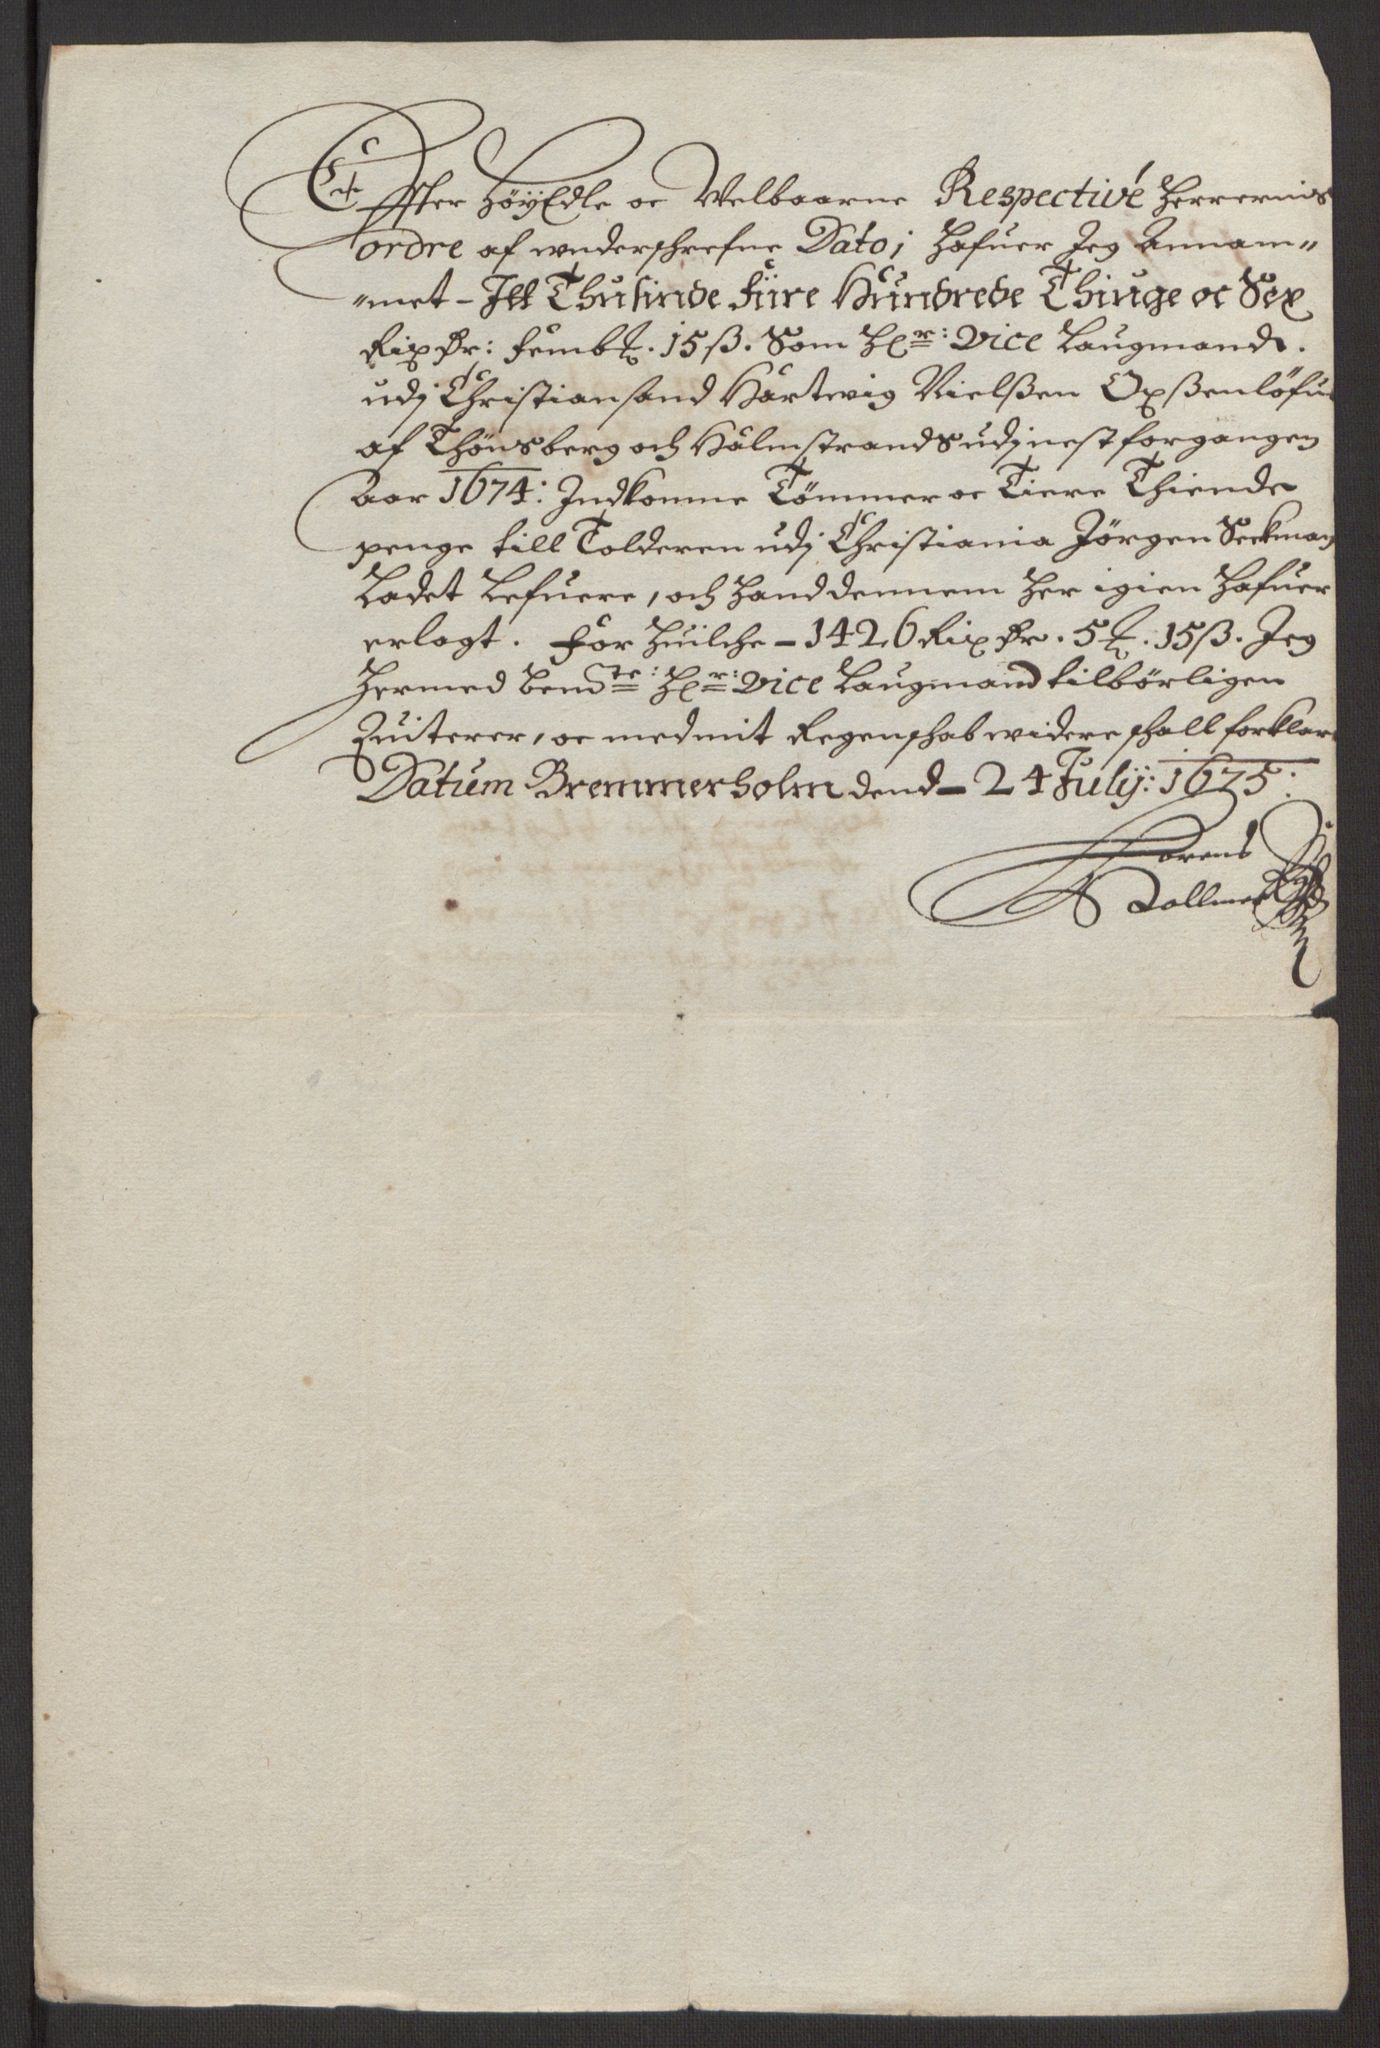 Effter HöyEdle oc Velbaarne Respectivé Herrernis
ordre af wnderschrefne Dato; Hafuer Jeg Annam"
"met - Itt Thusinde fiire Hundrede Thiuge oc Sex
Rix dr: femb ℔. 15 ß. Som Hr: vice Laugmand.
udj Christiansand Hartwig Nielßen Oxßenlöfu
af Thönsberg och Hålmstrands udj nest forgangen
Aar 1674: Indkomne Tömmer oc Tiere Thiende
penge till Tolderen udj Christiania Jörgen
Ladet Lefuere, och Hand dennem Her igien Hafuer
erlagt. for Huilche - 1426 Rix dr. 5 ℔. 15 ß. Jeg
Hermed bemte: Hr: vice Laugmand tilbörligen
Quiterer, oc med mit Regenschab widere schall forklare
Datum Bremmerholm dend - 24 Julij: 1675: